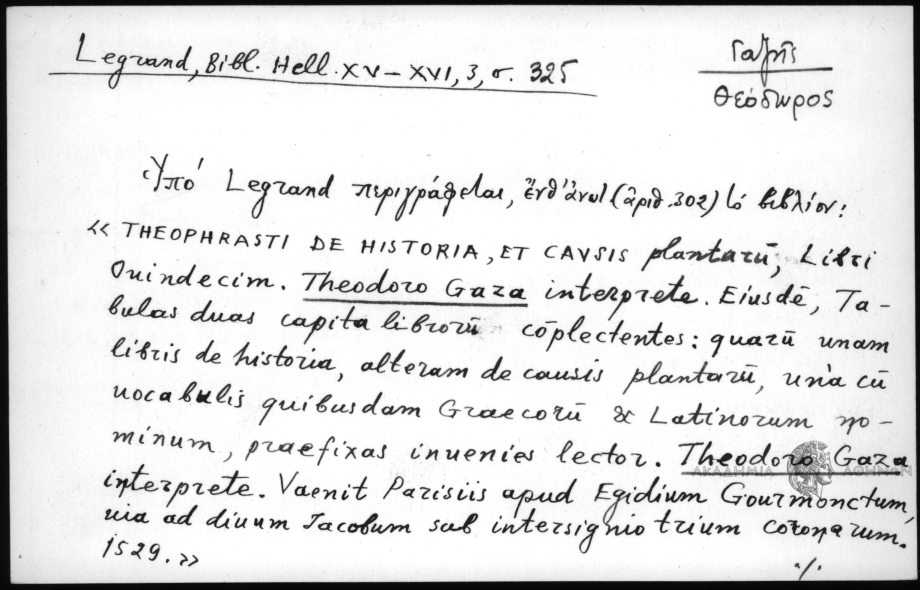 Legrand, Bibl. Hell. XV – XVI, 3, σ. 325
Γαζῆς
Θεόδωρος
Ὑπό Legrand περιγράφεται, ἔνθ' ἀνωτ. (ἀριθ. 302) τό βιβλίον:
« THEOPHRASTI DE HISTORIA, ET CAVSIS plantarū, Libri
Quindecim. Theodoro Gaza interprete. Eiusdē, Ta-
bulas duas capita librorū cōplectentes: quarū unam
libris de historia, alteram de causis plantarū, unà cū
uocabulis quibusdam Graecorū & Latinorum no-
minum, praefixas inuenies lector. Theodoro Gaza
ΑΚΑΔΗΜΙΑ ΑΘΗΝΩΝ
interprete. Vaenit Parisiis apud Egidium Gourmonctum,
uia ad diuum Jacobum sub intersignio trium coronarum.
1529. »
./.